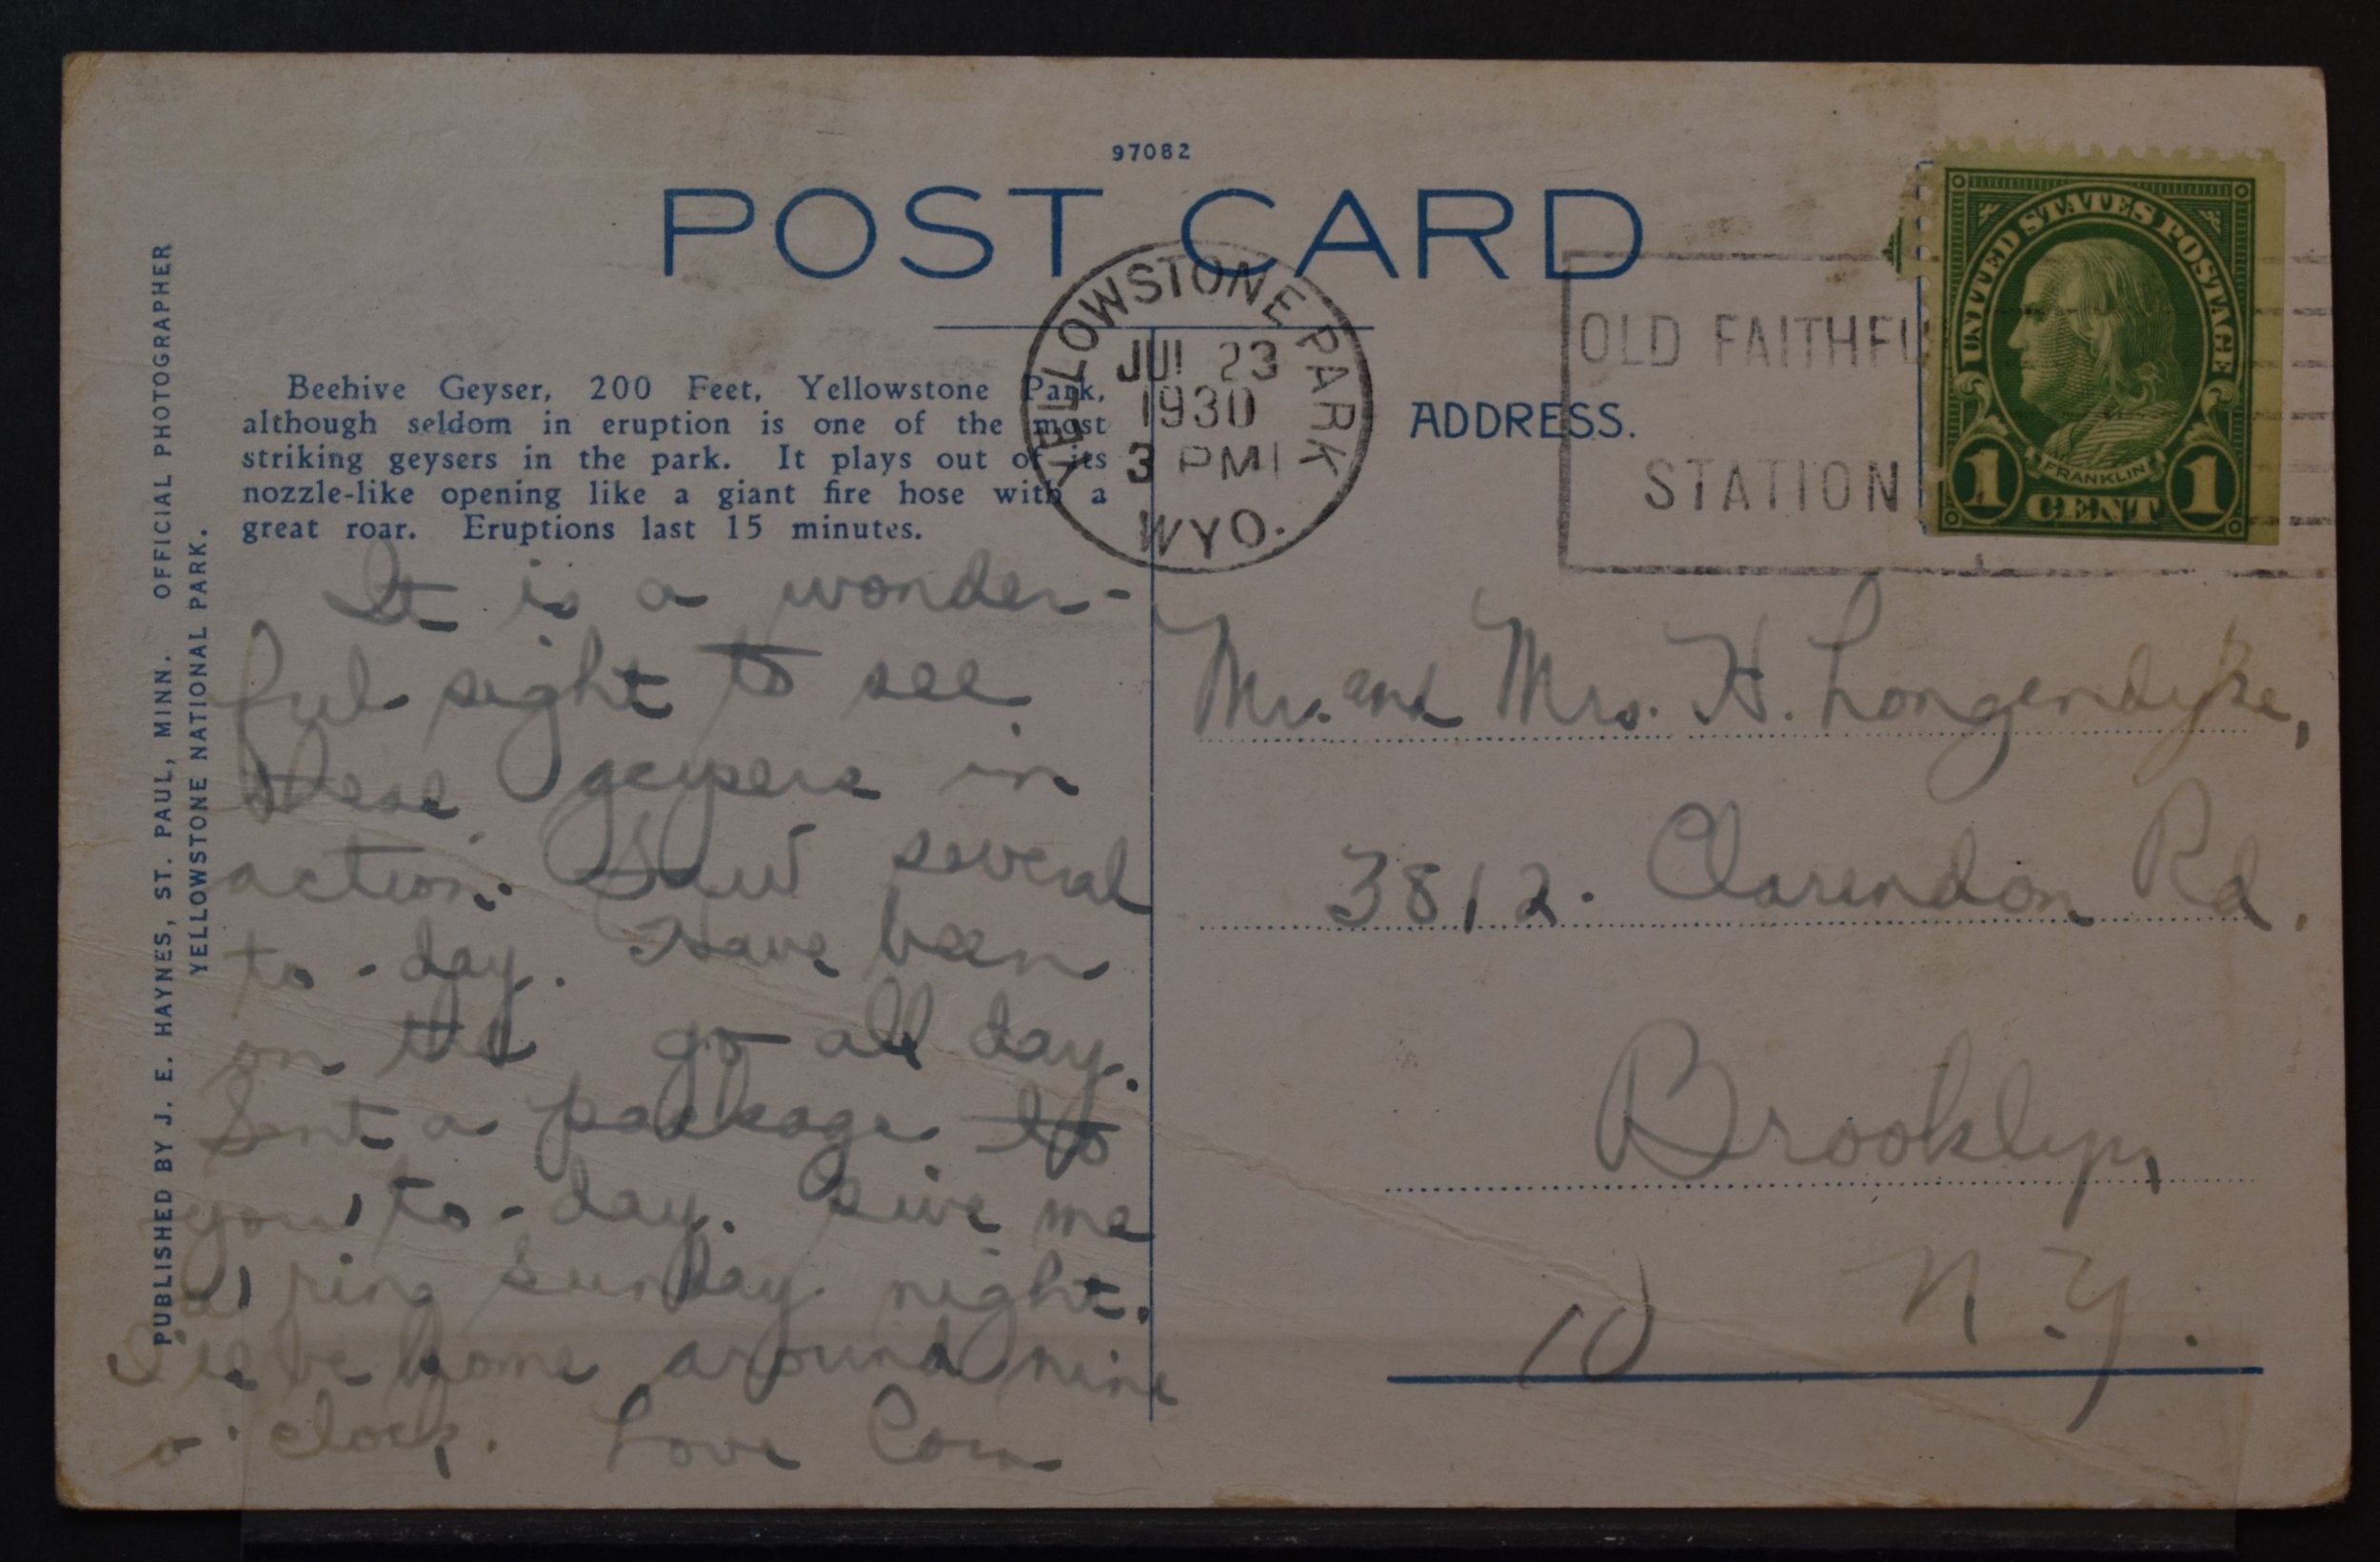 97082
POST CARD
YELLOWSTONE PARK
JUL 23
1930
3 PM
WYO.
OLD FAITHFU
STATION
UNITED STATES POSTAGE
FRANKLIN
1 CENT 1
PUBLISHED BY J. E. HAYNES, ST. PAUL, MINN. OFFICIAL PHOTOGRAPHER
YELLOWSTONE NATIONAL PARK.
Beehive Geyser, 200 Feet, Yellowstone Park,
although seldom in eruption is one of the most
striking geysers in the park. It plays out of its
nozzle-like opening like a giant fire hose with a
great roar. Eruptions last 15 minutes.
It is a wonder-
ful sight to see
these geysers in
action. Saw several
to-day. Have been
on the go all day.
Sent a package to
you to-day. Give me
a ring Sunday night.
I'll be home around nine
o'clock. Love
ADDRESS.
Mr. and Mrs. H. Longendyke,
3812. Clarendon Rd.
Brooklyn,
N.Y.
10